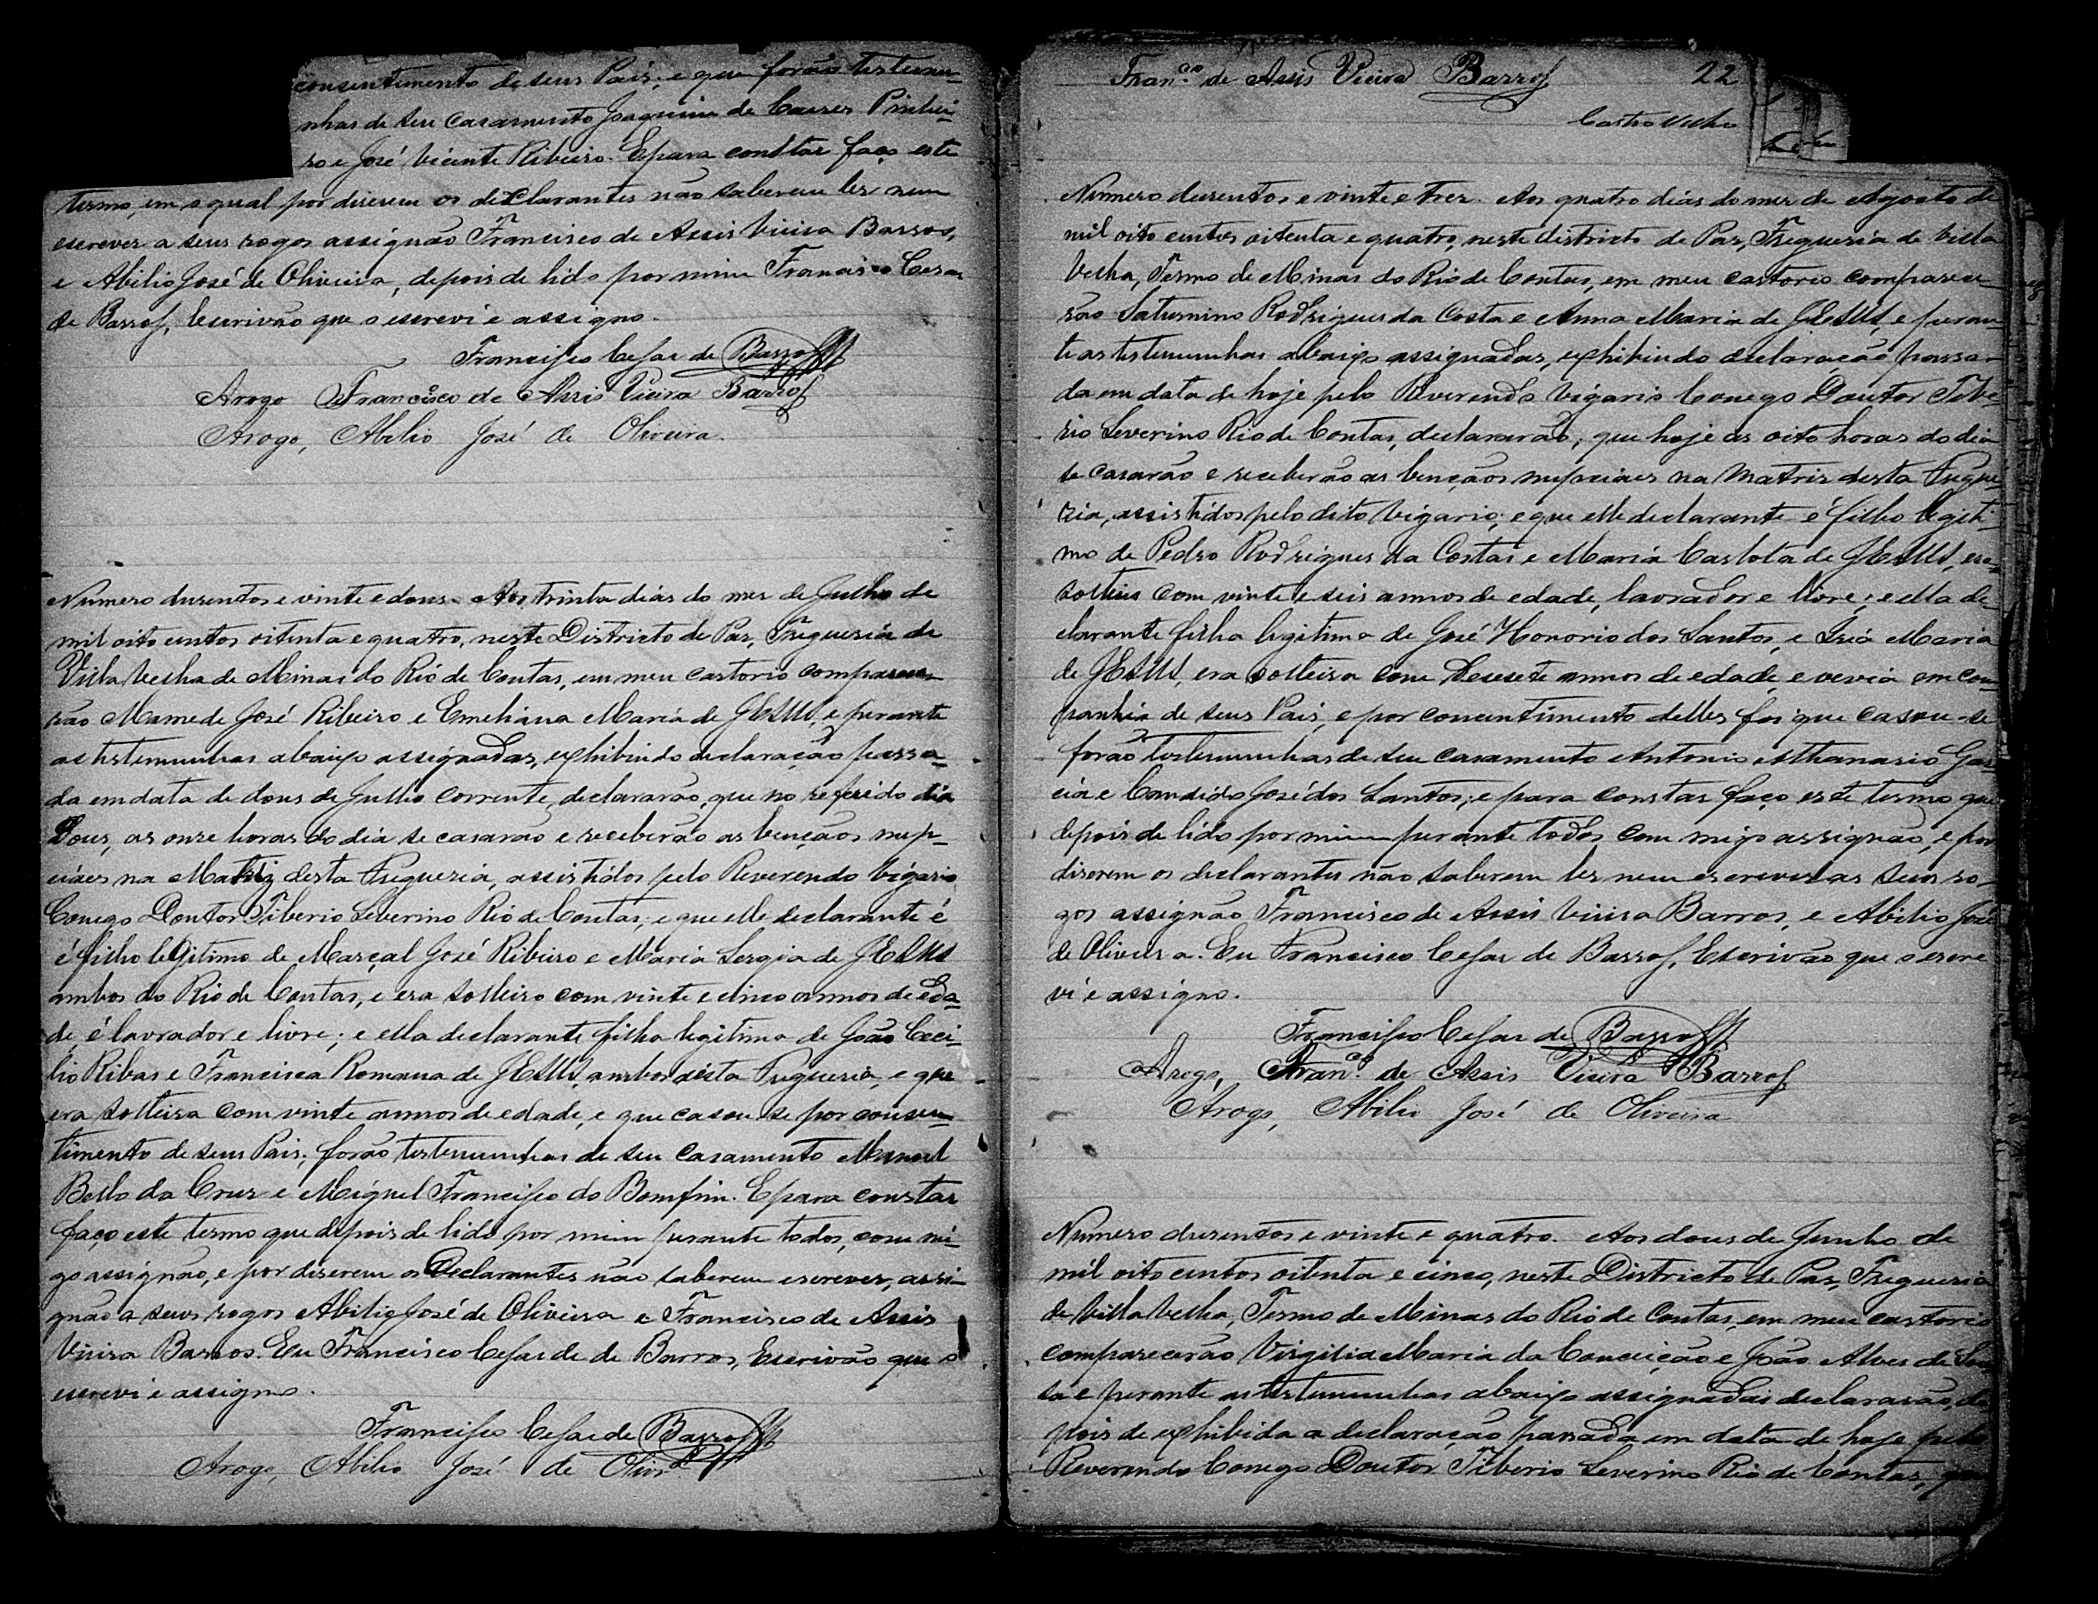 consentimento de seus Pais; e que forão testemu-
nhas de seu casamento Joaquim de Pinhei-
ro e José Vicente Ribeiro. E para constar faço este
termo, em o qual por diserem os declarantes não saberem ler nem
escrever a seus rogos assignão Francisco de Assis Vieira Barros,
e Abilio José de Oliveira, depois de lido por mim Francisco Cesar
de Barros, Escrivão que o escrevi e assigno.
Francisco Cesar de Barros
Arogo Francisco de Assis Vieira Barros
Arogo, Abilio José de Oliveira.
Numero dusentos e vinte e dous. Aos trinta dias do mes de Julho de
mil oito centos oitenta e quatro, neste Districto de Pas, Freguesia de
Villa Velha de Minas do Rio de Contas, em meu cartorio comparece-
rão Mamede José Ribeiro e Emeliana Maria de JESUS, e perante
as testemunhas abaixo assignadas, exhibindo declaração passa-
da em data de dous de Julho corrente, declararão, que no referido dia
Dous, as onse horas do dia se casarão e receberão as bençãos nup-
ciaes na Matriz desta Freguesia, assistidos pelo Reverendo Vigario
Conego Doutor Tiberio Severino Rio de Contas; e que elle declarante é
é filho legitimo de Marçal José Ribeiro e Maria Sergia de JESUS
ambos do Rio de Contas, e era solteiro com vinte e cinco annos de eda-
de, é lavrador e livre; e ella declarante filha legitima de João Ceci-
lio Ribas e Francisca Romana de JESUS, ambos desta Freguesia, e que
era solteira com vinte annos de edade, e que casou-se por consen-
timento de seus Pais; forão testemunhas de seu casamento Manoel
Bello da Crus e Miguel Francisco do Bomfim. E para constar
faço este termo que depois de lido por mim perante todos, com mi-
go assignão, e por diserem os Declarantes não saberem escrever, assi-
gnão a seus rogos Abilio José de Oliveira e Francisco de Assis
Vieira Barros. Eu Francisco Cesar de de Barros, Escrivão que o
escrevi e assigno.
Francisco Cesar de Barros
Arogo, Abilio José de Olivr.ª
Fran.co de Assis Vieira Barros 22
Numero dusentos e vinte e tres. Aos quatro dias do mes de Agosto de
mil oito centos oitenta e quatro, neste districto de Pas, Freguesia de Villa
Velha, Termo de Minas do Rio de Contas, em meu cartorio comparece-
rão Saturnino Rodrigues da Costa e Anna Maria de JESUS, e peran-
te as testemunhas abaixo assignadas, exhibindo declaração passa-
da em data de hoje pelo Reverendo Vigario Conego Doutor Tibe-
rio Severino Rio de Contas, declararão, que hoje as oito horas do dia
se casarão e receberão as bençãos nupciaes na Matriz desta Fregue-
sia, assistidos pelo dito Vigario; e que elle declarante é filho legiti-
mo de Pedro Rodrigues da Costa e Maria Carlota de JESUS, era
solteiro com vinte e seis annos de edade, lavrador e livre; e ella de-
clarante filha legitima de José Honorio dos Santos, e Iria Maria
de JESUS, era solteira com Desesete annos de edade, e vevia em com-
panhia de seus Pais, e por consentimento delles foi que casou-se
forão testemunhas de seu casamento Antonio Athanasio Gar-
cia e Candido José dos Santos; e para constar faço este termo que
depois de lido por mim perante todos com migo assignão, e por
diserem os declarantes não saberem ler nem escrever as seus ro-
gos assignão Francisco de Assis Vieira Barros, e Abilio José
de Oliveira. Eu Francisco Cesar de Barros, Escrivão que o escre
vi e assigno.
Francisco Cesar de Barros
Arogo, Fran.co de Assis Vieira Barros
Arogo, Abilio José de Oliveira
Numero dusentos e vinte e quatro. Aos dous de Junho de
mil oito centos oitenta e cinco, neste Districto de Pas, Freguesia
de Villa Velha, Termo de Minas do Rio de Contas, em meu cartorio
comparecerão Virgilia Maria da Conceição e João Alves de Sou
sa e perante as testemunhas abaixo assignadas declararão, de
pois de exhibida a declaração passada em data de hoje pelo
Reverendo Conego Doutor Tiberio Severino Rio de Contas, que